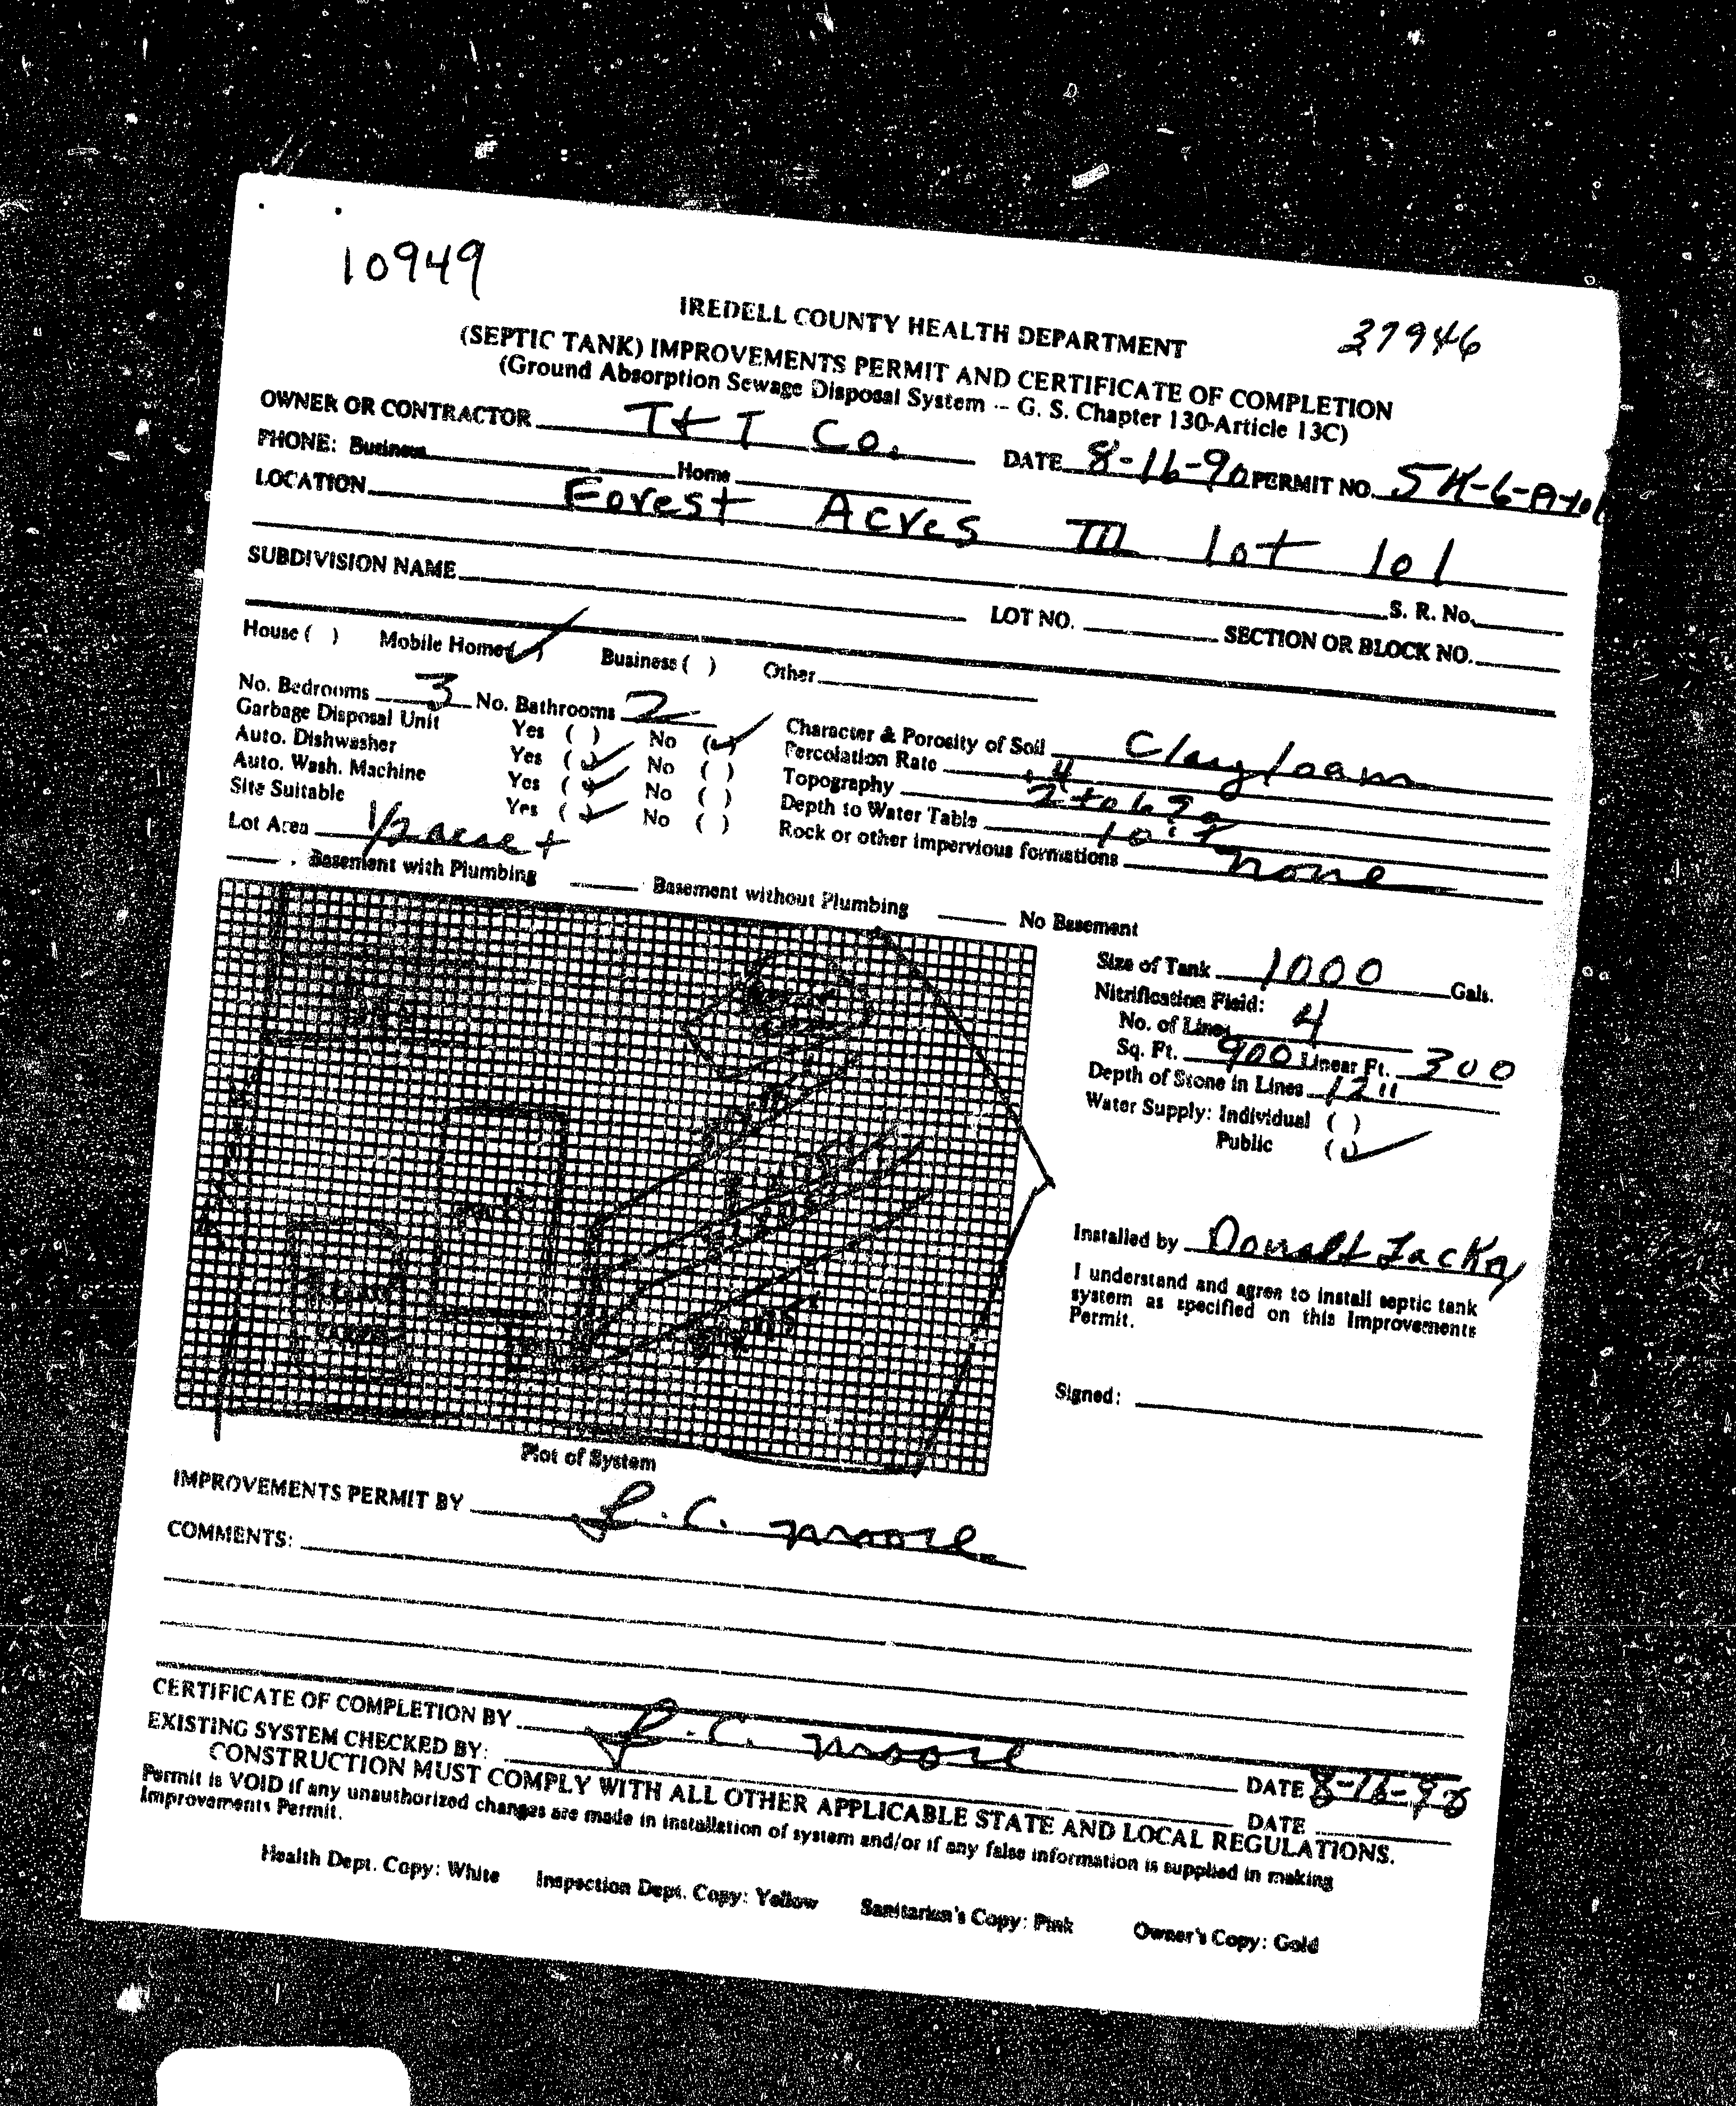 10949
IREDELL COUNTY HEALTH DEPARTMENT
37946
(SEPTIC TANK) IMPROVEMENTS PERMIT AND CERTIFICATE OF COMPLETION
(Ground Absorption Sewage Disposal System -- G. S. Chapter 130-Article 13C)
OWNER OR CONTRACTOR T+T Co. DATE 8-16-90 PERMIT NO.
PHONE: Business Home
LOCATION Forest Acres III lot 101
S. R. No.
SUBDIVISION NAME LOT NO. SECTION OR BLOCK NO.
House ( ) Mobile Home (✓) Business ( ) Other
No. Bedrooms 3 No. Bathrooms 2
Garbage Disposal Unit Yes ( ) No (✓)
Auto. Dishwasher Yes (✓) No ( )
Auto. Wash. Machine Yes (✓) No ( )
Site Suitable Yes (✓) No ( )
Lot Area 1/2 acre +
Character & Porosity of Soil Clay loam
Percolation Rate .4
Topography 2 to 6 %
Depth to Water Table
Rock or other impervious formations none
Basement with Plumbing Basement without Plumbing No Basement
Size of Tank 1000 Gals.
Nitrification Field:
No. of Lines 4
Sq. Ft. 900 Linear Ft. 300
Depth of Stone in Lines 12"
Water Supply: Individual ( )
Public (✓)
Installed by Donald Lackey
I understand and agree to install septic tank
system as specified on this Improvements
Permit.
Signed:
Plot of System
IMPROVEMENTS PERMIT BY L. C. Moore
COMMENTS:
CERTIFICATE OF COMPLETION BY L. C. Moore DATE 8-16-90
EXISTING SYSTEM CHECKED BY: DATE
CONSTRUCTION MUST COMPLY WITH ALL OTHER APPLICABLE STATE AND LOCAL REGULATIONS.
Permit is VOID if any unauthorized changes are made in installation of system and/or if any false information is supplied in making
Improvements Permit.
Health Dept. Copy: White Inspection Dept. Copy: Yellow Sanitarian's Copy: Pink Owner's Copy: Gold